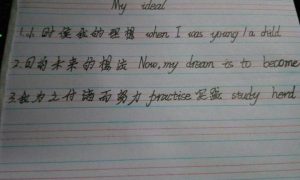 My ideal
1.小时候我的理想 when I was young/a child
2.目的未来的想法 Now, my dream is to become
3.我为之付诸而努力 practise 实验 study hard